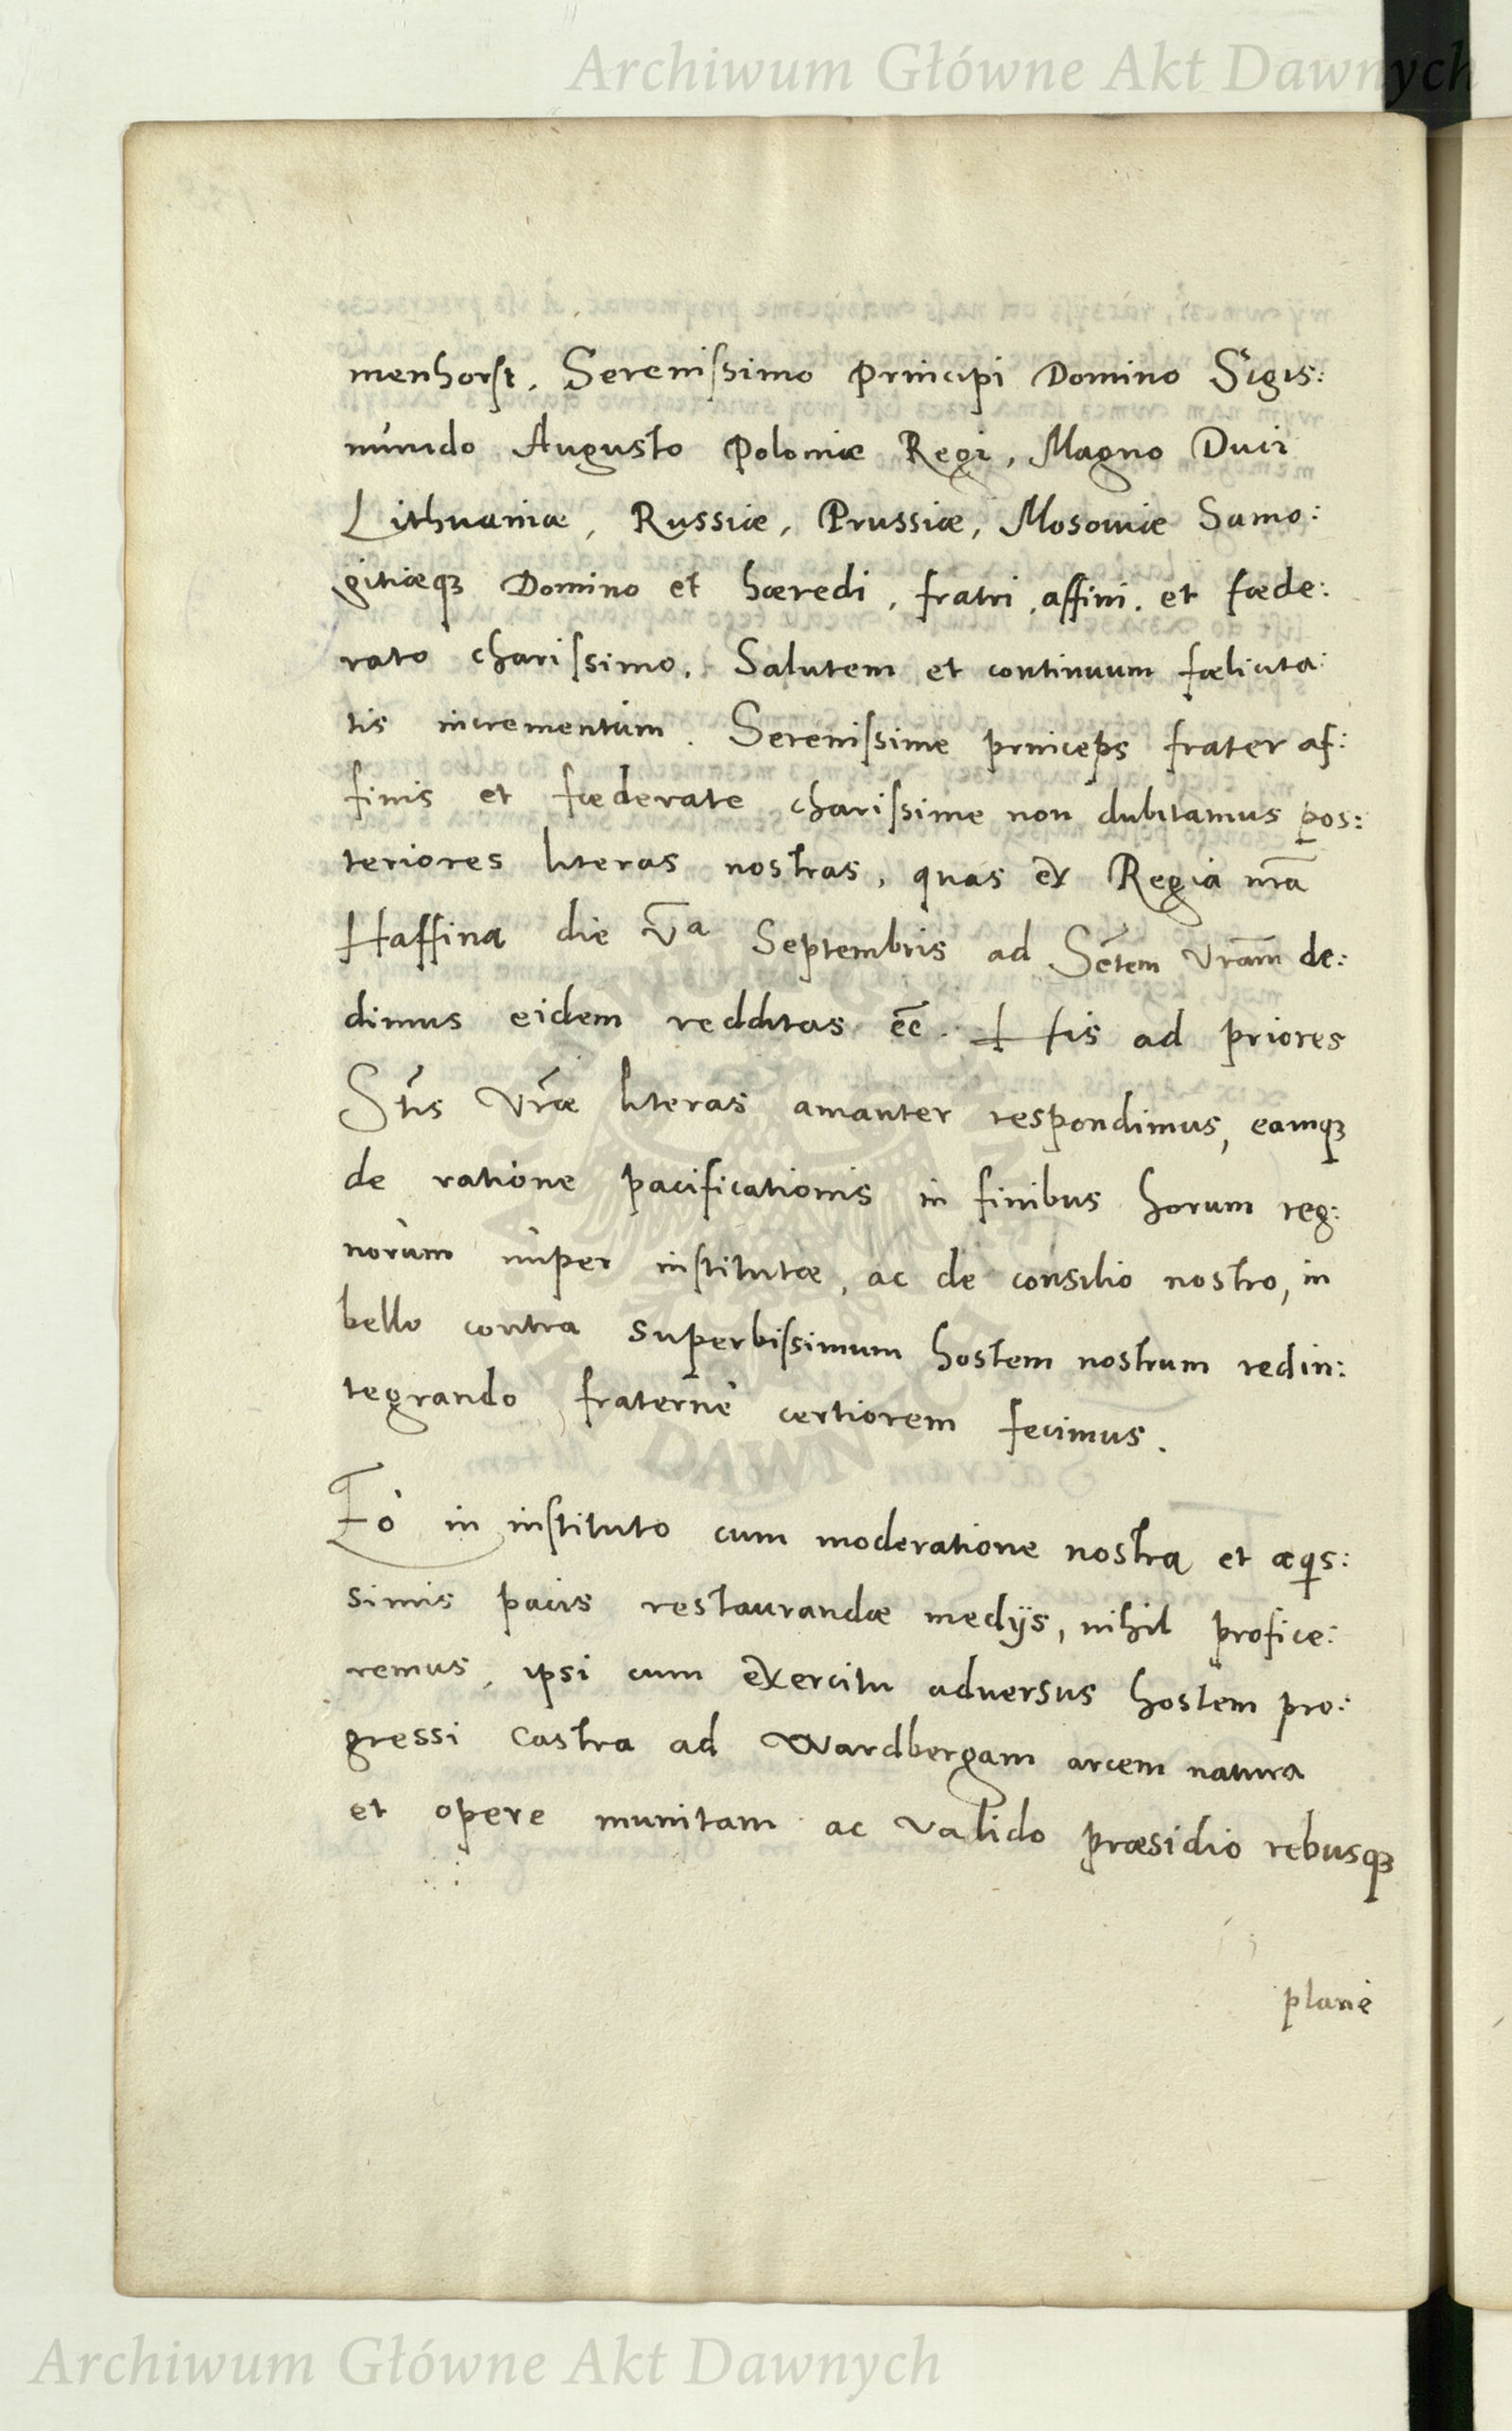 Archiwum Główne Akt Dawnych
menhorst. Serenissimo Principi Domino Sigis:
mundo Augusto Poloniæ Regi, Magno Duci
Lithuaniæ, Russiæ, Prussiæ, Mosouiæ Samo:
gitiæqꝫ Domino et hæredi, fratri, affini. et fœde:
rato charissimo. Salutem et continuum fœlicita:
tis incrementum. Serenissime princeps frater af:
finis et fœderate charissime non dubitamus pos:
teriores literas nostras, quas ex Regia nr̃a
Haffina die Vª Septembris ad Sẽtem Vram̃ de:
dimus eidem redditas eẽ. His ad priores
Stĩs Vræ̃ literas amanter respondimus, eamqꝫ
de ratione pacificationis in finibus horum reg:
norum nuper institutæ, ac de consilio nostro, in
bello contra superbissimum hostem nostrum redin:
tegrando fraternè certiorem fecimus.
Eò in instituto cum moderatione nostra et æqs:
simis pacis restaurandæ medijs, nihil profice:
remus, ipsi cum exercitu aduersus hostem pro:
gressi Castra ad Wardbergam arcem natura
et opere munitam ac valido præsidio rebusqꝫ
planè
Archiwum Główne Akt Dawnych